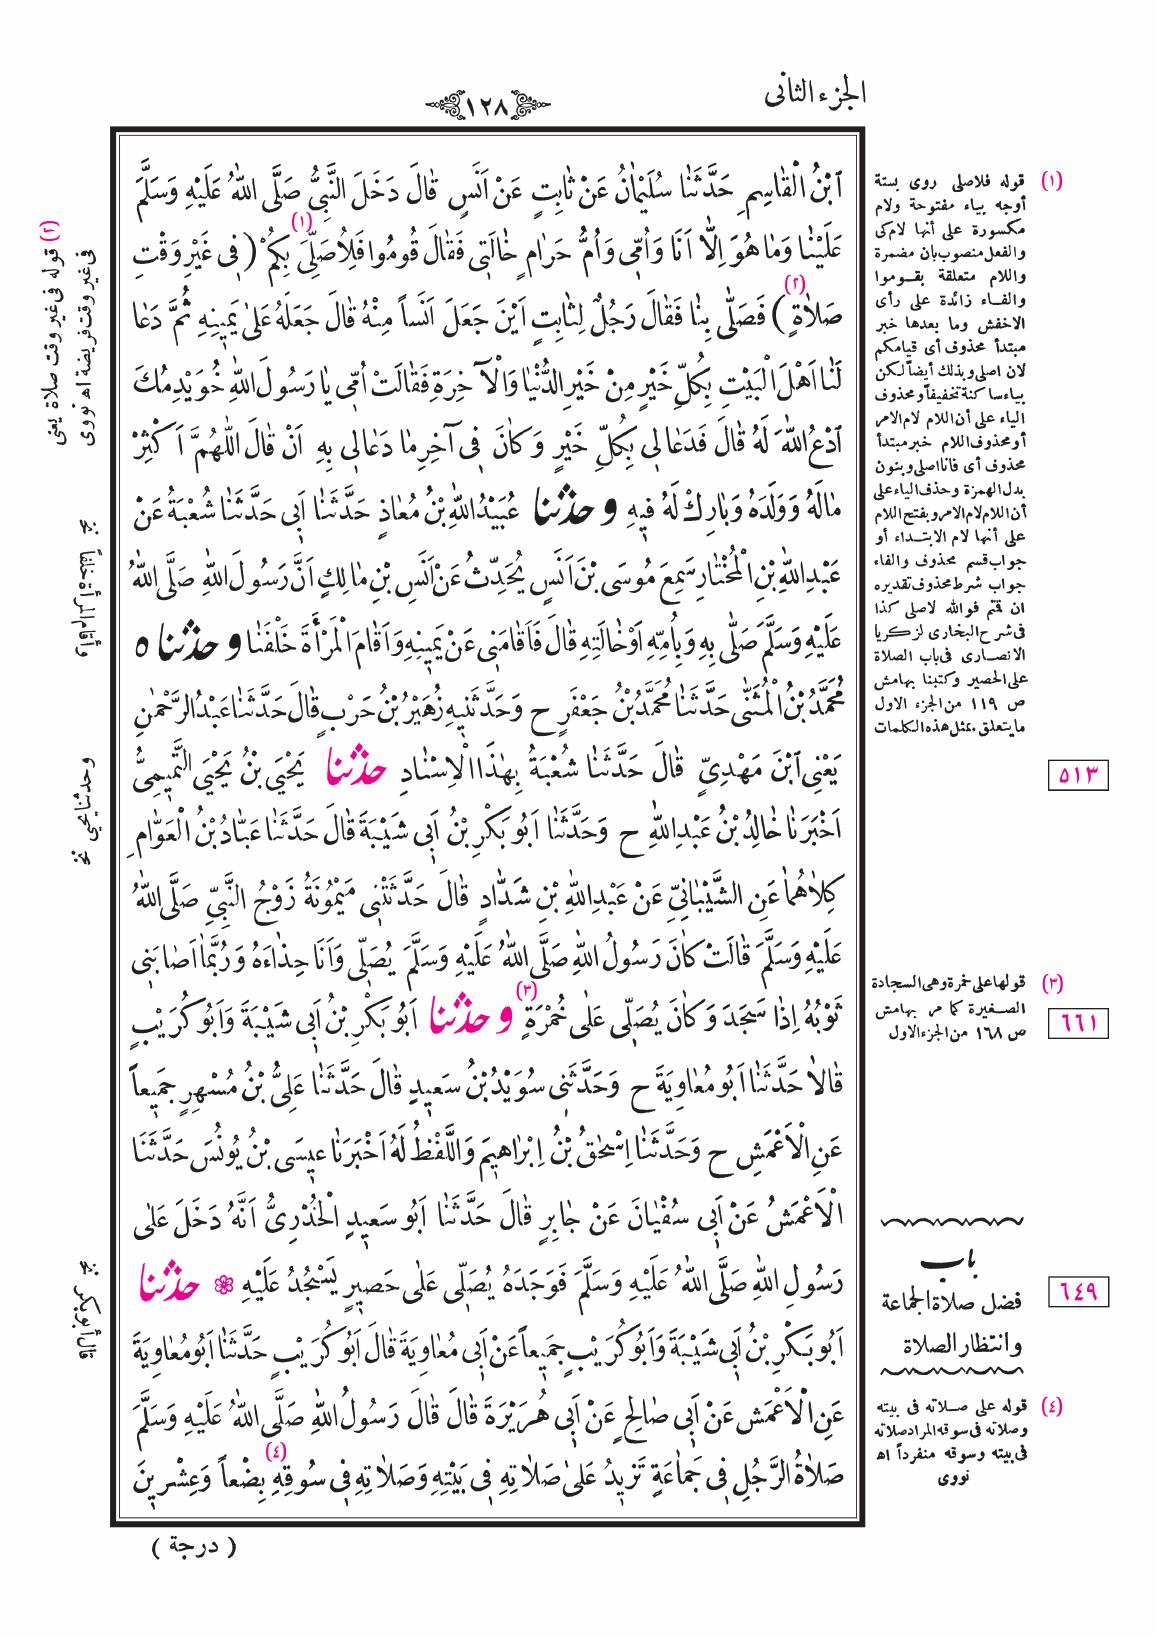 الجزء الثانى
١٢٨
ٱبْنُ الْقَاسِمِ حَدَّثَنَا سُلَيْمَانُ عَنْ ثَابِتٍ عَنْ اَنَسٍ قَالَ دَخَلَ النَّبِىُّ صَلَّى اللهُ عَلَيْهِ وَسَلَّمَ
عَلَيْنَا وَمَا هُوَ اِلَّا اَنَا وَاُمِّى وَاُمُّ حَرَامٍ خَالَتِى فَقَالَ قُومُوا فَلِاُصَلِّىَ (١) بِكُمْ ( فِى غَيْرِ وَقْتِ
صَلَاةٍ (٢) ) فَصَلّٰى بِنَا فَقَالَ رَجُلٌ لِثَابِتٍ اَيْنَ جَعَلَ اَنَساً مِنْهُ قَالَ جَعَلَهُ عَلٰى يَمِينِهِ ثُمَّ دَعَا
لَنَا اَهْلَ الْبَيْتِ بِكُلِّ خَيْرٍ مِنْ خَيْرِ الدُّنْيَا وَالْآخِرَةِ فَقَالَتْ اُمِّى يَا رَسُولَ اللهِ خُوَيْدِمُكَ
ٱدْعُ اللهَ لَهُ قَالَ فَدَعَا لِى بِكُلِّ خَيْرٍ وَكَانَ فِى آخِرِ مَا دَعَا لِى بِهِ اَنْ قَالَ اللّٰهُمَّ اَكْثِرْ
مَالَهُ وَوَلَدَهُ وَبَارِكْ لَهُ فِيهِ وحدثنا عُبَيْدُ اللهِ بْنُ مُعَاذٍ حَدَّثَنَا اَبِى حَدَّثَنَا شُعْبَةُ عَنْ
عَبْدِ اللهِ بْنِ الْمُخْتَارِ سَمِعَ مُوسَى بْنَ اَنَسٍ يُحَدِّثُ عَنْ اَنَسِ بْنِ مَالِكٍ اَنَّ رَسُولَ اللهِ صَلَّى اللهُ
عَلَيْهِ وَسَلَّمَ صَلّٰى بِهِ وَبِاُمِّهِ اَوْ خَالَتِهِ قَالَ فَاَقَامَنِى عَنْ يَمِينِهِ وَاَقَامَ الْمَرْأَةَ خَلْفَنَا وحدثنا ه
مُحَمَّدُ بْنُ الْمُثَنّٰى حَدَّثَنَا مُحَمَّدُ بْنُ جَعْفَرٍ ح وَحَدَّثَنِيهِ زُهَيْرُ بْنُ حَرْبٍ قَالَ حَدَّثَنَا عَبْدُ الرَّحْمٰنِ
يَعْنِى ٱبْنَ مَهْدِىٍّ قَالَ حَدَّثَنَا شُعْبَةُ بِهٰذَا الْاِسْنَادِ حدثنا يَحْيَى بْنُ يَحْيَى التَّمِيمِىُّ
اَخْبَرَنَا خَالِدُ بْنُ عَبْدِ اللهِ ح وَحَدَّثَنَا اَبُو بَكْرِ بْنُ اَبِى شَيْبَةَ قَالَ حَدَّثَنَا عَبَّادُ بْنُ الْعَوَّامِ
كِلَاهُمَا عَنِ الشَّيْبَانِىِّ عَنْ عَبْدِ اللهِ بْنِ شَدَّادٍ قَالَ حَدَّثَتْنِى مَيْمُونَةُ زَوْجُ النَّبِىِّ صَلَّى اللهُ
عَلَيْهِ وَسَلَّمَ قَالَتْ كَانَ رَسُولُ اللهِ صَلَّى اللهُ عَلَيْهِ وَسَلَّمَ يُصَلِّى وَاَنَا حِذَاءَهُ وَرُبَّمَا اَصَابَنِى
ثَوْبُهُ اِذَا سَجَدَ وَكَانَ يُصَلِّى عَلٰى خُمْرَةٍ (٣) وحدثنا اَبُو بَكْرِ بْنُ اَبِى شَيْبَةَ وَاَبُو كُرَيْبٍ
قَالَا حَدَّثَنَا اَبُو مُعَاوِيَةَ ح وَحَدَّثَنِى سُوَيْدُ بْنُ سَعِيدٍ قَالَ حَدَّثَنَا عَلِىُّ بْنُ مُسْهِرٍ جَمِيعاً
عَنِ الْاَعْمَشِ ح وَحَدَّثَنَا اِسْحٰقُ بْنُ اِبْرَاهِيمَ وَاللَّفْظُ لَهُ اَخْبَرَنَا عِيسَى بْنُ يُونُسَ حَدَّثَنَا
الْاَعْمَشُ عَنْ اَبِى سُفْيَانَ عَنْ جَابِرٍ قَالَ حَدَّثَنَا اَبُو سَعِيدٍ الْخُدْرِىُّ اَنَّهُ دَخَلَ عَلٰى
رَسُولِ اللهِ صَلَّى اللهُ عَلَيْهِ وَسَلَّمَ فَوَجَدَهُ يُصَلِّى عَلٰى حَصِيرٍ يَسْجُدُ عَلَيْهِ ❀ حدثنا
اَبُو بَكْرِ بْنُ اَبِى شَيْبَةَ وَاَبُو كُرَيْبٍ جَمِيعاً عَنْ اَبِى مُعَاوِيَةَ قَالَ اَبُو كُرَيْبٍ حَدَّثَنَا اَبُو مُعَاوِيَةَ
عَنِ الْاَعْمَشِ عَنْ اَبِى صَالِحٍ عَنْ اَبِى هُرَيْرَةَ قَالَ قَالَ رَسُولُ اللهِ صَلَّى اللهُ عَلَيْهِ وَسَلَّمَ
صَلَاةُ الرَّجُلِ فِى جَمَاعَةٍ تَزِيدُ عَلٰى صَلَاتِهِ فِى بَيْتِهِ وَصَلَاتِهِ فِى سُوقِهِ (٤) بِضْعاً وَعِشْرِينَ
( درجة )
(١) قوله فلاصلى روى بستة
أوجه بياء مفتوحة ولام
مكسورة على أنها لام كى
والفعل منصوب بان مضمرة
واللام متعلقة بقوموا
والفاء زائدة على رأى
الاخفش وما بعدها خبر
مبتدأ محذوف أى قيامكم
لان اصلى وبذلك أيضاً لكن
بياء ساكنة تخفيفاً ومحذوف
الياء على أن اللام لام الامر
أو محذوف اللام خبر مبتدأ
محذوف أى فانا اصلى وبنون
بدل الهمزة وحذف الياء على
أن اللام لام الامر وبفتح اللام
على أنها لام الابتداء أو
جواب قسم محذوف والفاء
جواب شرط محذوف تقديره
ان قمتم فوالله لاصلى كذا
فى شرح البخارى لزكريا
الانصارى فى باب الصلاة
على الحصير وكتبنا بهامش
ص ١١٩ من الجزء الاول
ما يتعلق بمثل هذه الكلمات
٥١٣
(٣) قولها على خمرة وهى السجادة
الصغيرة كما مر بهامش
ص ١٦٨ من الجزء الاول
٦٦١
باب
فضل صلاة الجماعة
وانتظار الصلاة
٦٤٩
(٤) قوله على صلاته فى بيته
وصلاته فى سوقه المراد صلاته
فى بيته وسوقه منفرداً اه
نووى
(٢) قوله فى غير وقت صلاة يعنى
فى غير وقت فريضة اه نووى
وأقام المرأة خلفنا نخ
وحدثنا يحيى نخ
قال أبو بكر نخ